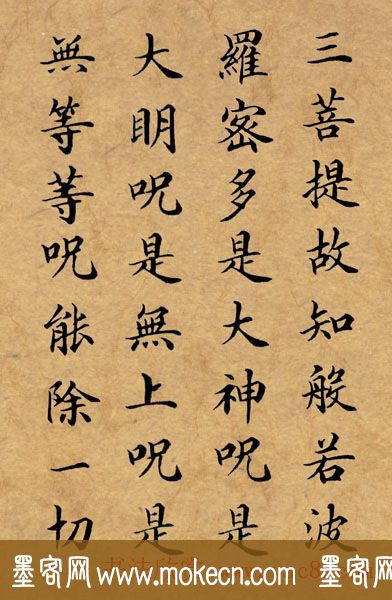 三菩提故知般若波
羅密多是大神呪是
大明呪是無上呪是
無等等呪能除一切
墨客网 www.mokecn.com 墨客网